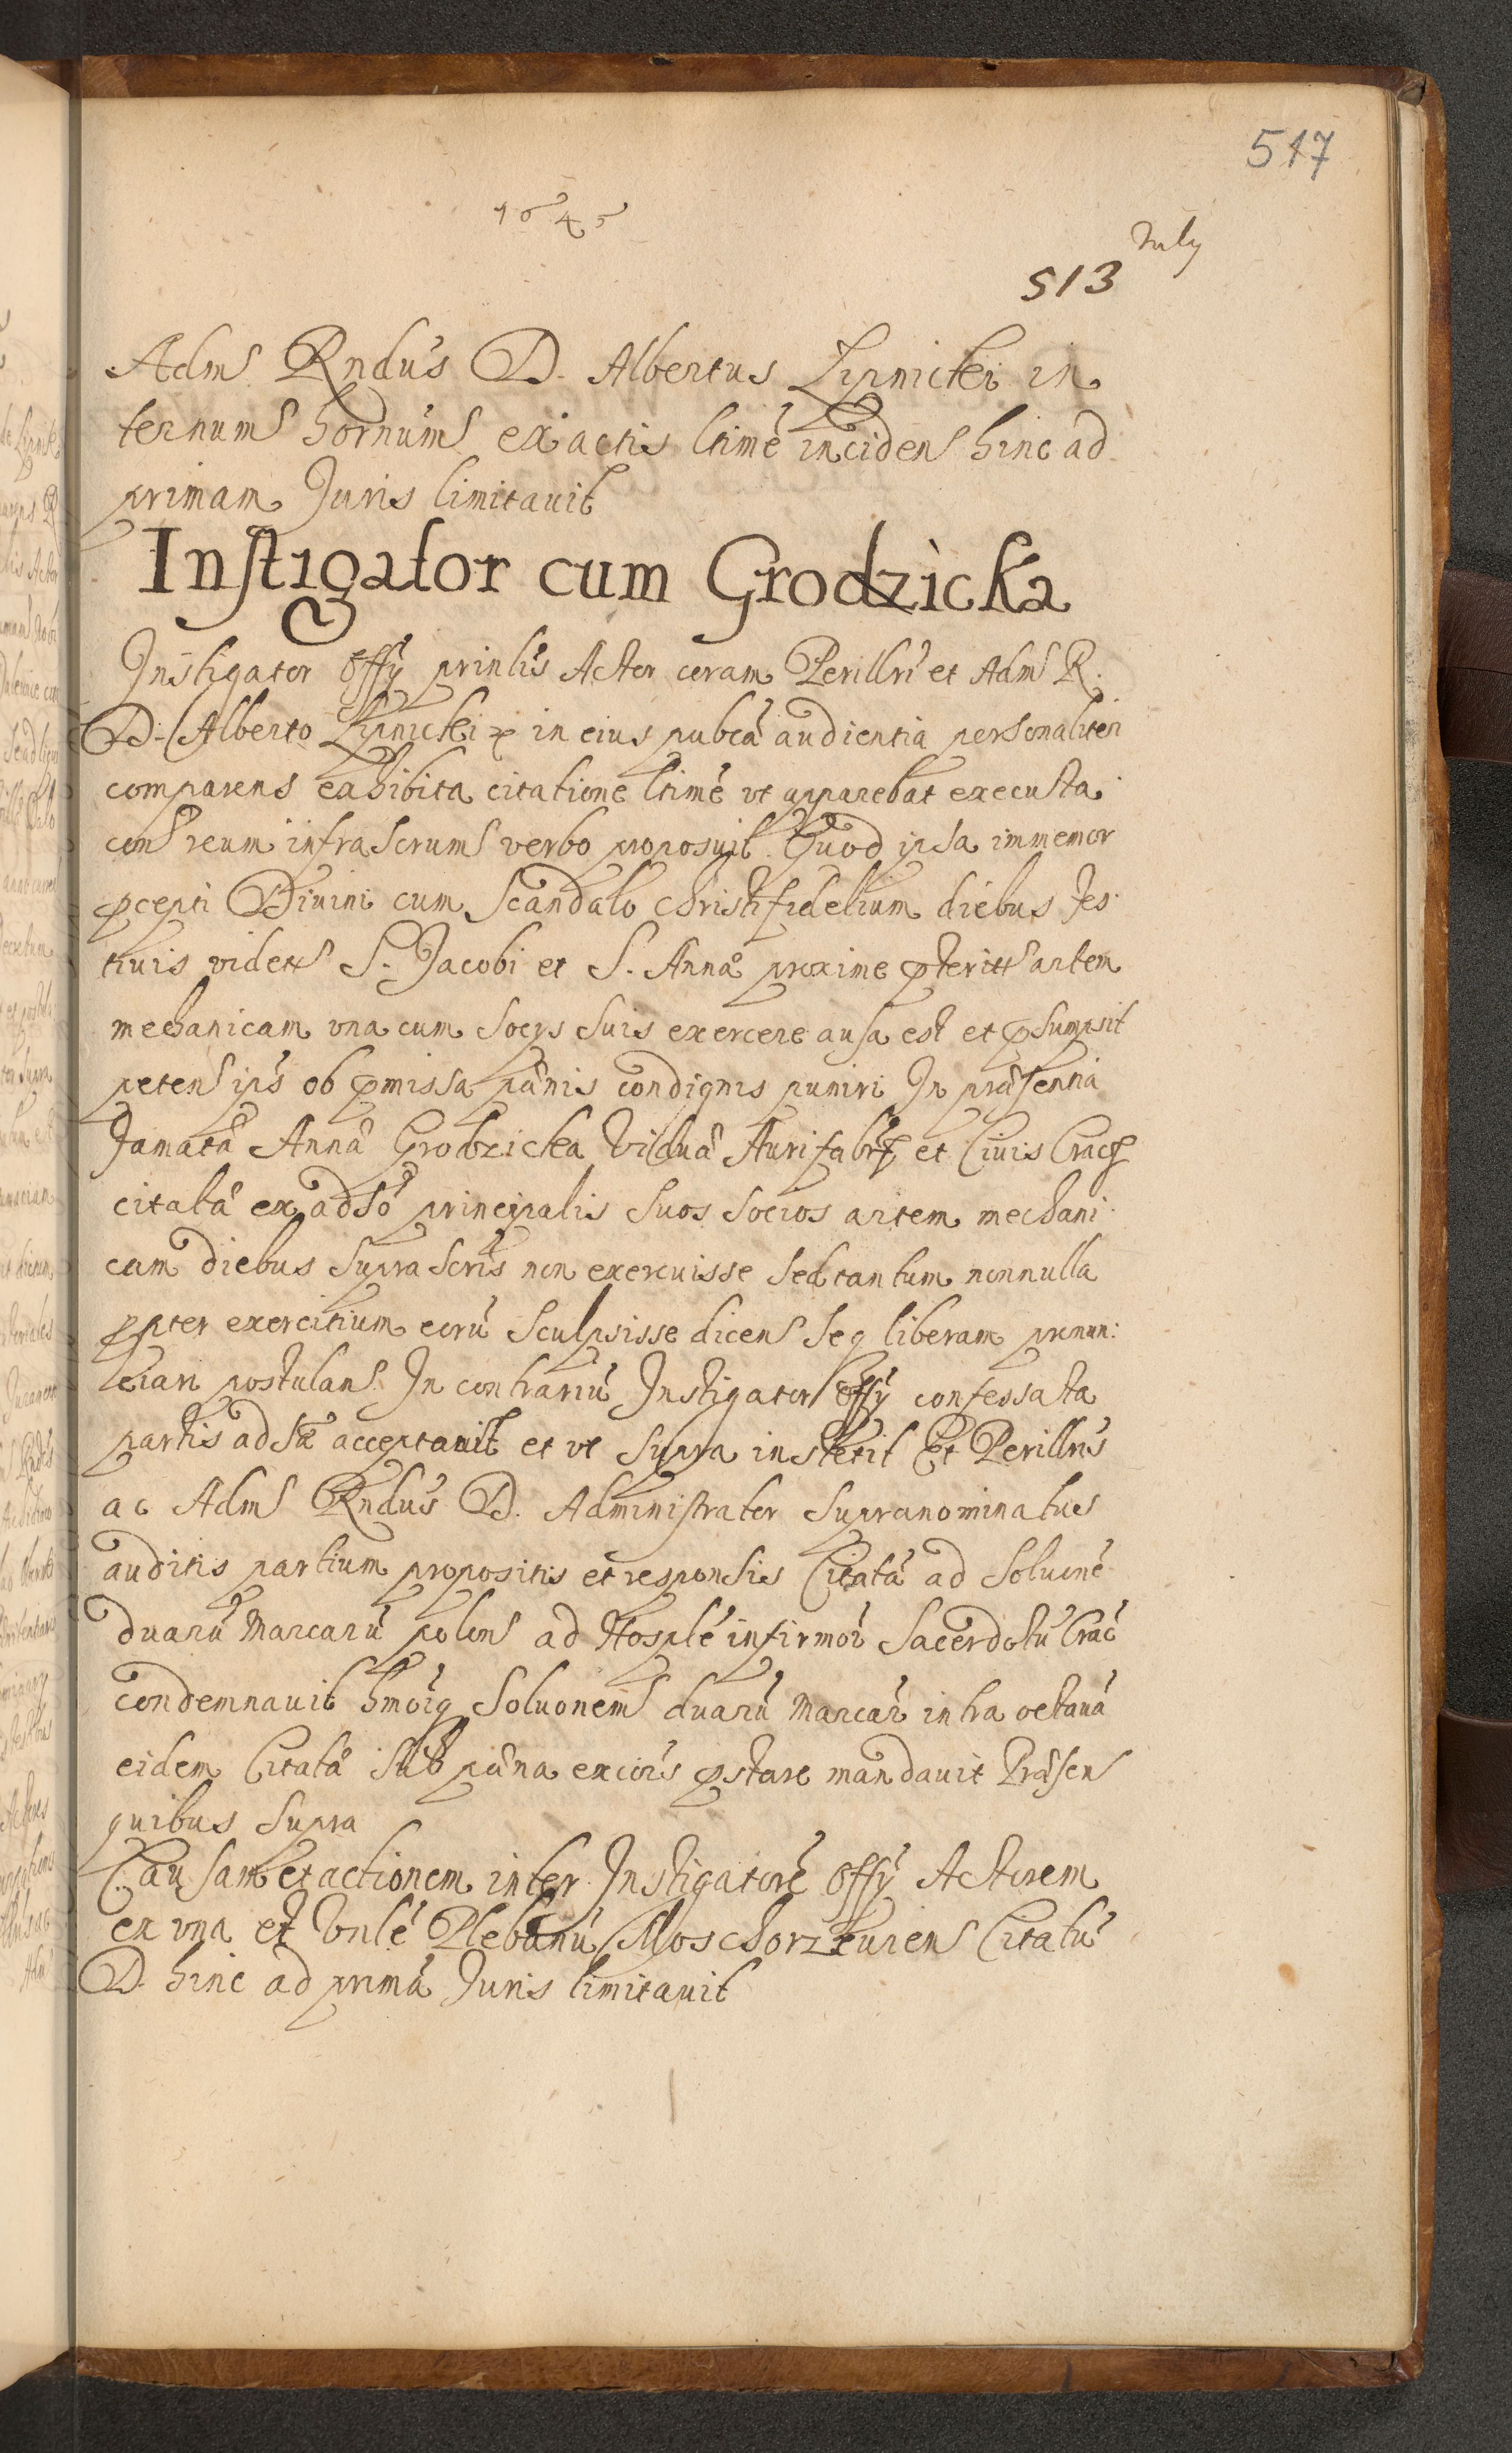 517
1645
July
513
Adm Rndus D. Albertus Lipnicki in
ternum hornum ex actis ltime inciden hinc ad
primam Juris limitauit
Instigator cum Grodzicka
Instigator Offy prinlis Actor coram Perillri et Adm R.
D. Alberto Lipnicki in eius pubca audientia personaliter
comparens exhibita citatione ltime vt apparebat executa
con reum infrascrum verbo proposuit Quod ipsa immemor
pcepti Diuini cum Scandalo Christifidelium diebus fes
tiuis vidett S. Jacobi et S. Annæ proxime pteritt artem
mechanicam vna cum Socys Suis exercere ausa est et psumpsit
peten ips ob pmissa pænis condignis puniri In præsentia
famatæ Annæ Grodzicka Viduæ Aurifabri et Ciuis Crac
citatæ ex adso principalis Suos Socios artem mechani
cam diebus Suprascris non exercuisse Sed tantum nonnulla
ppter exercitium eorū Sculpsisse dicen Seq liberam pronun:
ciari postulan In contrariū Instigator Offy confessata
partis adsæ acceptauit et vt Supra institit Et Perillris
ac Adm Rndus D. Administrator Supranominatus
auditis partium propositis et responsis Citatā ad Soluonē
duarū Marcarū polon ad Hosplē infirmor Sacerdotū Crac
condemnauit hmoiq Soluonem duarū Marcar intra octauā
eidem Citatæ Sub pæna excois pstare mandauit Præsen
quibus Supra
Causam et actionem inter Instigatorē Offy Actorem
ex vna et Vnlē Plebanū Moschorzeuien Citatū
D. hinc ad primā Juris limitauit